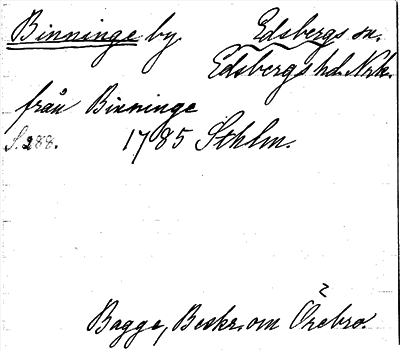 Binninge by. Edsbergs sn.
Edsbergs hd. Nrk.
från Binninge
S. 288. 1785 Sthlm.
Bagge, Beskr. om Örebro.